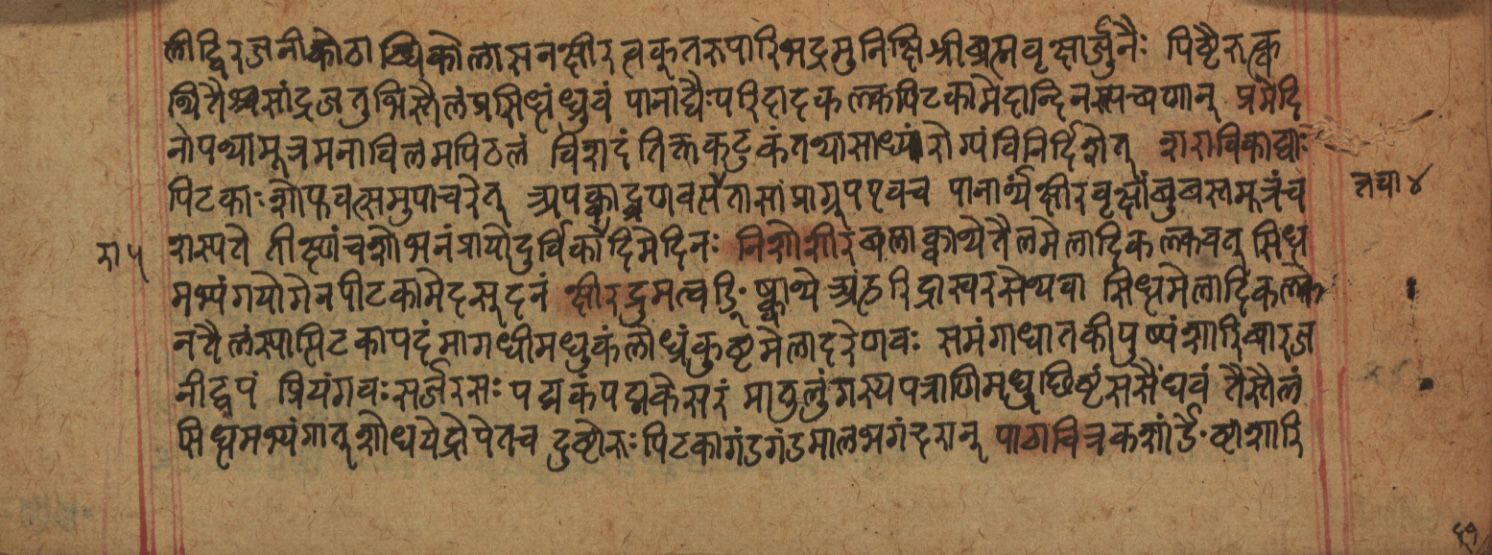 लीद्विरजनीकोठा ब्धिकोलासनक्षीरत्वकुतरूपारिभद्रमुनिक्षिश्रीब्रह्मवृक्षार्जुनैः पिष्टैरुत्क्व
थितैश्चसांद्रजतुभिस्तैलंप्रसिध्धंध्रुवं पानाद्यैःपरिदादकल्कपिटकामेदान्दिनस्यच्वणान् प्रमेदि
नोपथ्यामूत्रमनाविलमपिठलं विशदंतिक्तकटुकंतथासाध्यंरोग्यंविनिर्दिशेत् शराविकाद्याः
पिटकाःशोफवत्समुपाचरेत् अपक्वाद्ब्रणवत्पेतासांप्राग्रूपएवच पानार्थंक्षीरवृक्षांबुबस्तमूत्रंच त्रचा४
रा५ शस्पते तीक्ष्णंचशोभनंत्रायोदुर्विकोदिमेदिनः निशोशीरबलाक्वाथेतैलमेलादिकल्कवत् सिध
मभ्यंगयोगेनपीटकामेदसूदनं क्षीरद्रुमत्वङ्निःष्क्वाथे अंठरिद्रास्वरसेथवा सिध्धमेलादिकल्के
नतैलंस्यात्पिटकापदंमागधीमधुकंलोध्रंकुष्टमेलादरेणवः समंगाधातकीपुष्पंशारिबारज
नीद्वपं प्रियंगवःसर्जरसः पद्मकंपद्मकेसरं मातुलुंगस्यपत्राणिमधुछिष्टंससैंधवं तैस्तैलं
सिध्धमभ्यंगात्शोधयेद्रोपेतच दुष्टोरुःपिटकागंडगंडमालभगंदरान् पाठाचित्रकशार्ङेष्टाशारि
६१